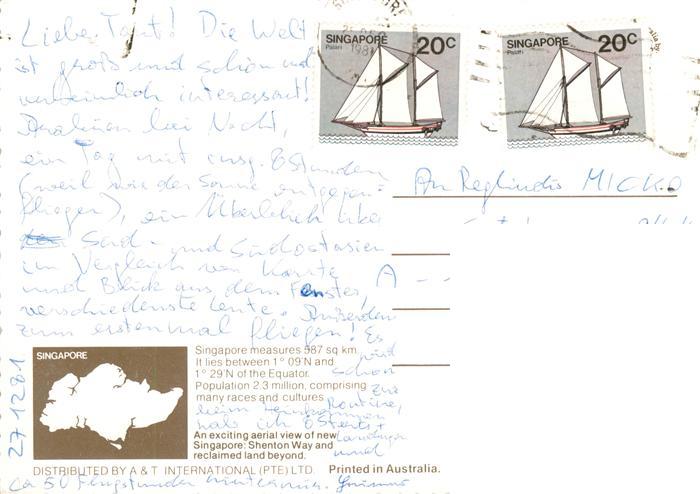 Liebe Tant! Die Welt
ist groß und schön und
unheimlich interessant!
Arabien bei Nacht,
ein Tag mit insg. 6 Stunden
(weil wir der Sonne entgegen-
fliegen), ein Überblick über
Süd- und Südostasien
im Vergleich von Karte
und Blick aus dem Fenster,
verschiedenste Leute. Außerdem
zum erstenmal fliegen! Es
wird
schon
zur
Routine,
ich 6 Starts +
Landungen
und
ca 50 Flugstunden hinter mir.
27 12 81
SINGAPORE 20c
Palari
SINGAPORE 20c
Palari
1981
An Reglindis MICKO
A - -
SINGAPORE
Singapore measures 587 sq km.
It lies between 1° 09'N and
1° 29'N of the Equator.
Population 2.3 million, comprising
many races and cultures
An exciting aerial view of new
Singapore: Shenton Way and
reclaimed land beyond.
DISTRIBUTED BY A & T INTERNATIONAL (PTE) LTD. Printed in Australia.